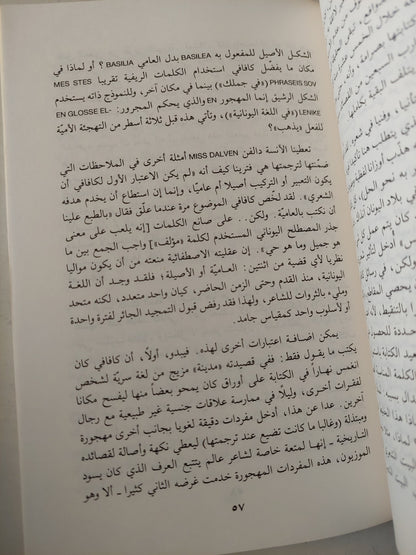 الشكل الأصيل للمفعول به BASILEA بدل العامي BASILIA ؟ أو لماذا في
مكان ما يفضّل كافافي استخدام الكلمات الريفية تقريبا MES STES
PHRASEIS SOV («في جملك») بينما في مكان آخر، وللنموذج ذاته يستخدم
الشكل الرشيق إنما المهجور EN والذي يحكم المجرور: EN GLOSSE EL-
LENIKE («في اللغة اليونانية»)، وتأتي هذه قبل ثلاثة أسطر من التهجئة الأميّة
للفعل «يذهب»؟
تعطينا الآنسة دالفن MISS DALVEN أمثلة أخرى في الملاحظات التي
ضمّنتها لترجمتها هي، فترينا كيف أنه «لم يكن الاعتبار الأول لكافافي أن
يكون التعبير أو التركيب أصيلا أم عاميا، وإنما إن استطاع أن يخدم هدفه
الشعري». لقد لخّص كافافي الموضوع مرة عندما علّق فقال «بالطبع علينا
أن نكتب بالعاميّة. ولكن.. على صانع الكلمات [إنه يلعب على معنى
جذر المصطلح اليوناني المستخدم لكلمة «مؤلف»] واجب الجمع بين ما
هو جميل وما هو حي». إن عقليته الاصطفائية منعته من أن يكون مواليا
نظريا لأي قضية من اثنتين: العاميّة أو الأصيلة؛ فلقد وجد أن اللغة
اليونانية، منذ القدم وحتى الزمن الحاضر، كيان واحد متعدد، لكنه متحد
ومليء بالثروات للشاعر، ولهذا فقد رفض قبول التمجيد الجائر لفترة واحدة
أو لأسلوب واحد كمقياس جامد.
يمكن اضافة اعتبارات أخرى لهذه. فيبدو، أولاً، أن كافافي كان
يكتب ما يقول فقط: ففي قصيدته «مدينة» مزيج من لغة سريّة لشخص
انغمس نهاراً في الكتابة على أوراق كان يمحو بعضاً منها ليفسح مكانا
لفقرات أخرى، وليلاً في ممارسة علاقات جنسية غير طبيعية مع رجال
آخرين. عدا عن هذا، أدخل مفردات دقيقة لغويا بجانب أخرى مهجورة
ومبتذلة (وغالبا ما كانت تضيع عند ترجمتها) ليعطي نكهة وأصالة لقصائده
التاريخية ـ إنها لمتعة خاصة لشاعر عالم يتتبع العرف الذي كان يسود
الموزيون، هذه المفردات المهجورة خدمت غرضه الثاني كثيرا ـ ألا وهو
٥٧